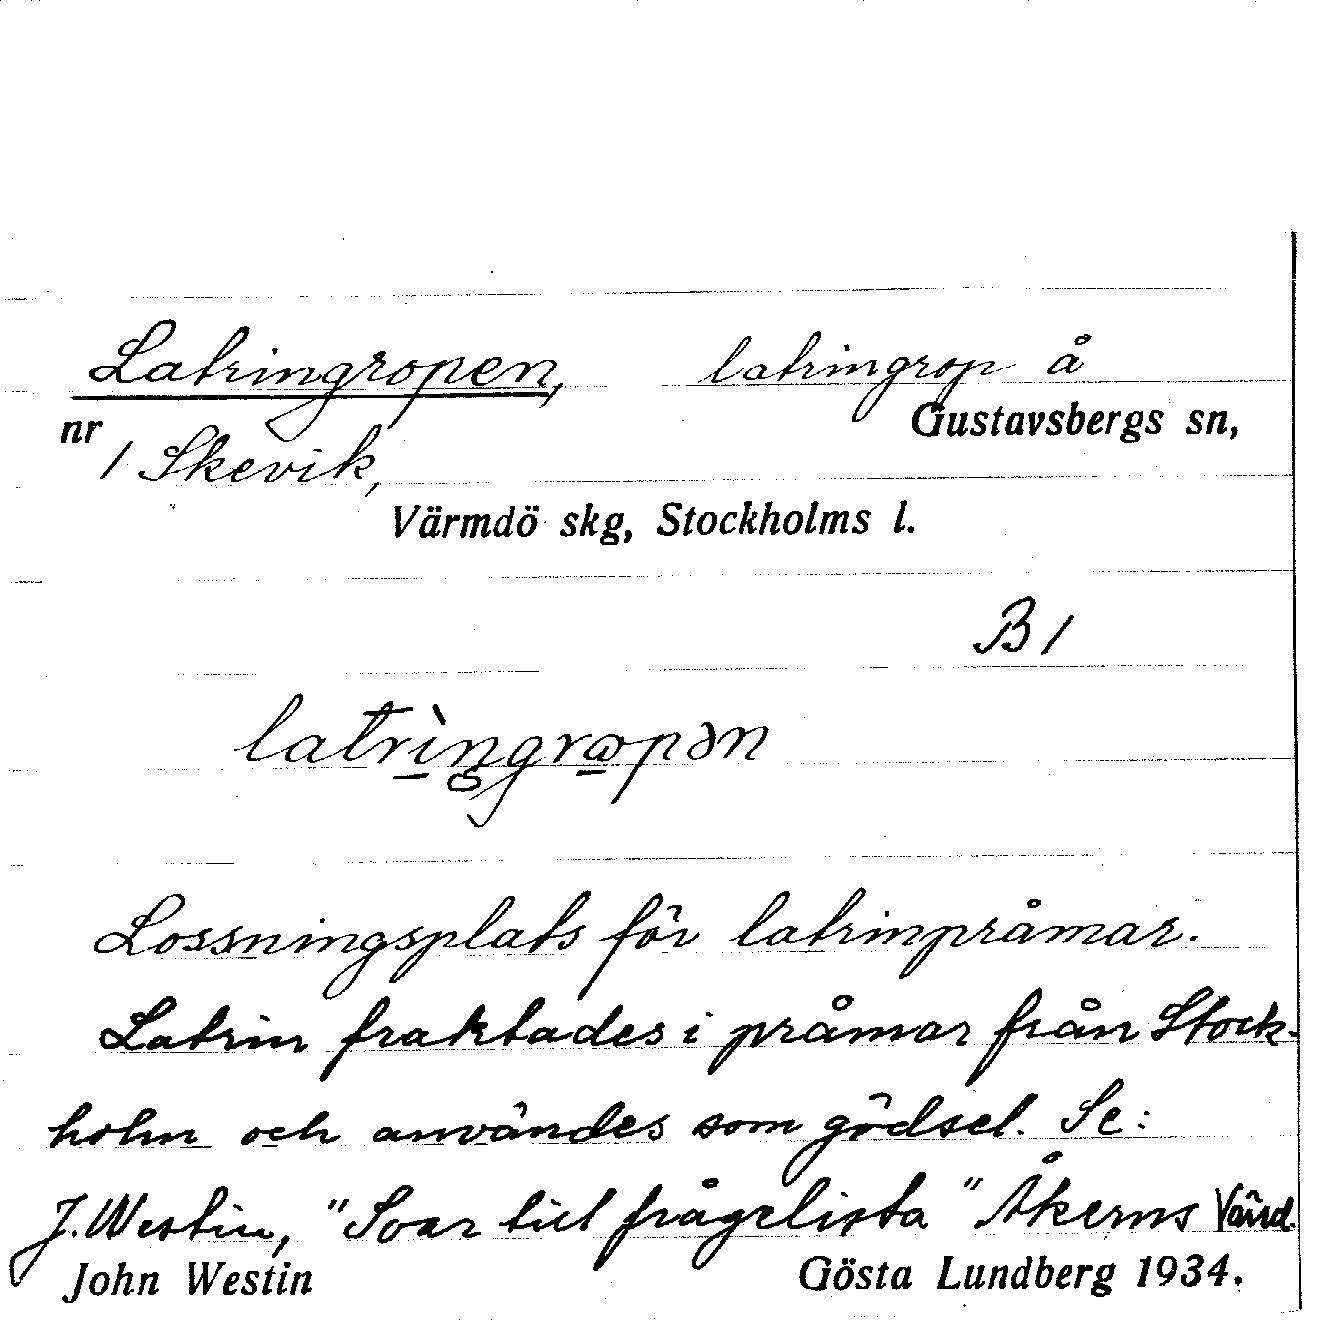 Latringropen, latringrop å
nr Gustavsbergs sn,
1 Skevik,
Värmdö skg, Stockholms l.
B 1
Lossningsplats för latrinpråmar.
Latrin fraktades i pråmar från Stock-
holm och användes som gödsel. Se:
J. Westin, "Svar till frågelista" Åkerns
John Westin Gösta Lundberg 1934.